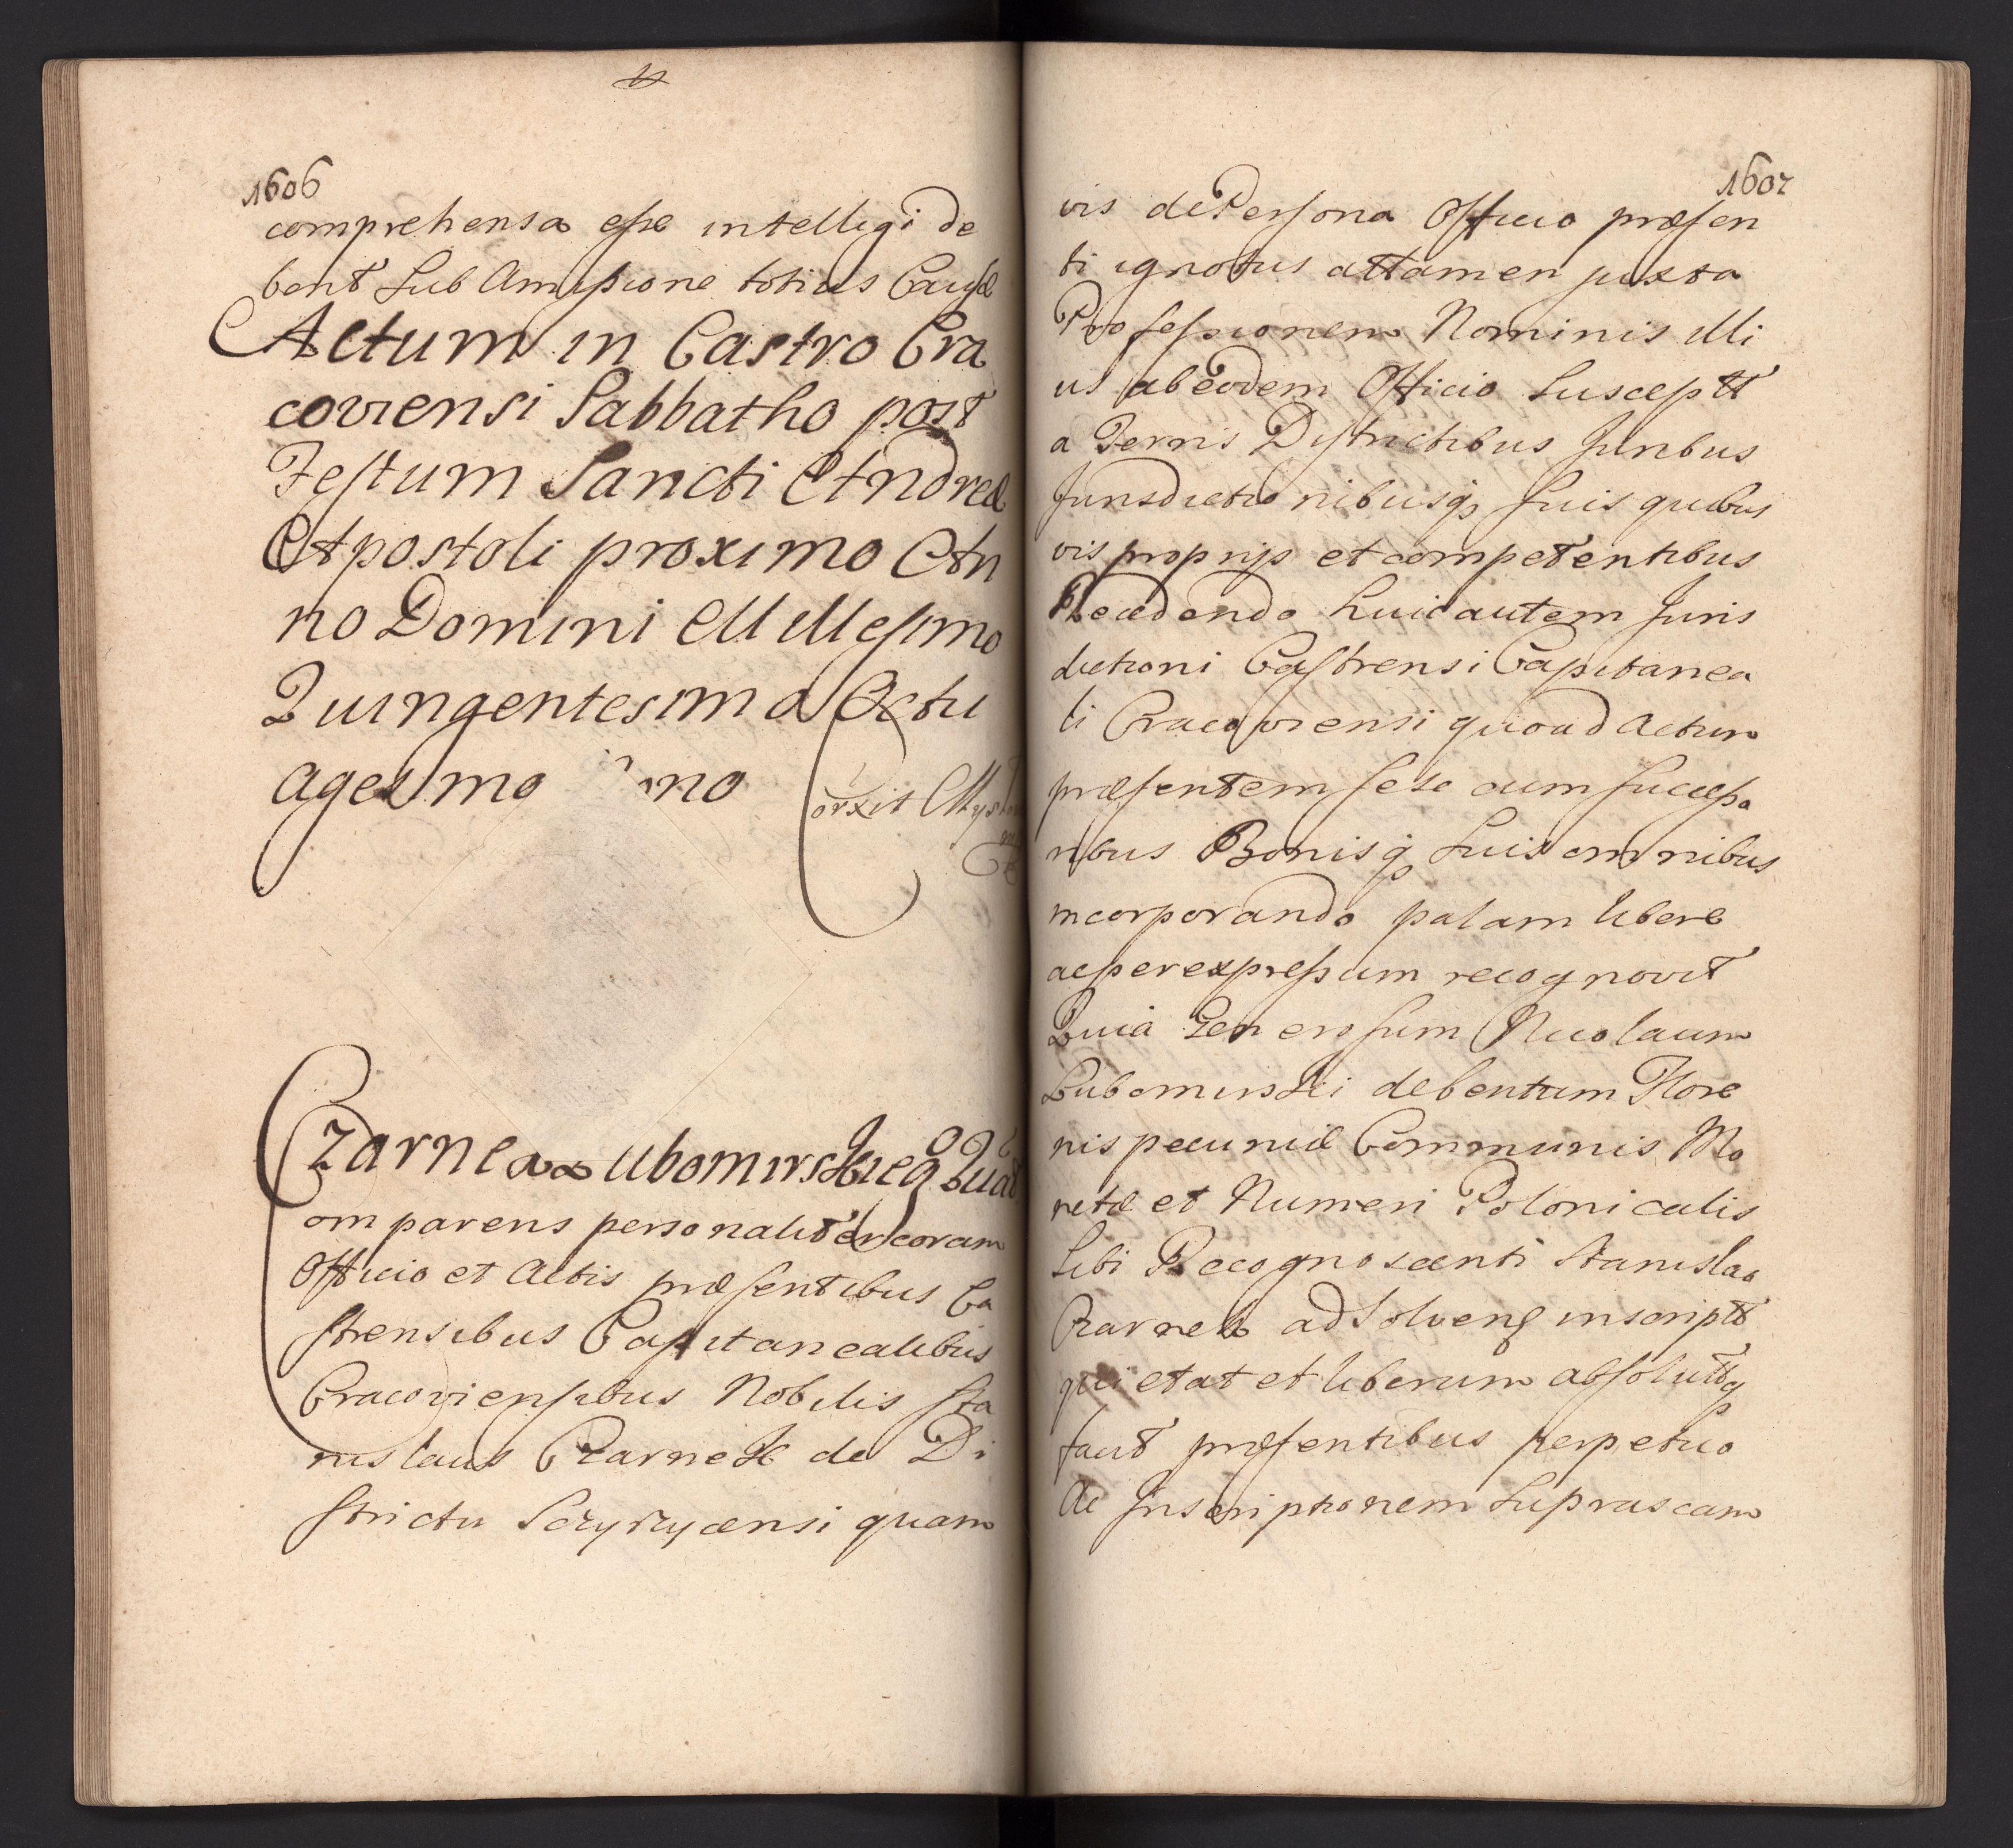 1606
comprehensa esse intelligi de
bent Sub Amissione totius Causæ
Actum in Castro Cra
coviensi Sabbatho post
Festum Sancti Andreæ
Apostoli proximo An
no Domini Millesimo
Quingentesimo Octu
agesimo no
Czarnea Lubomirskieg
omparens personaliter coram
Officio et Actis præsentibus Ca
strensibus Capitanealibus
Cracoviensibus Nobilis Sta
nislaus Czarnek de Di
strictu Sczyrzycensi quam
1607
vis de Persona Officio præsen
ti ignotus attamen juxta
Professionem Nominis illi
us ab eodem Officio Susceptt
a Terris Districtibus juribus
Jurisdictionibusq suis quibus
vis proprijs et competentibus
Recedendo huic autem Juris
dictioni Castrensi Capitanea
li Cracoviensi quoad Actum
præsentem sese cum successo
ribus Bonisq Suis omnibus
incorporando palam libere
ac per expressum recognovit
Quia Generosum Nicolaum
Lubomirski debentum Flore
nis pecuniæ Communis Mo
netæ et Numeri Polonicalis
Sibi Recognoscenti Stanislao
Czarnek ad Solvend inscriptt
quietat et liberum absoluttq
facit præsentibus perpetuo
Ac Inscriptionem Supra eam